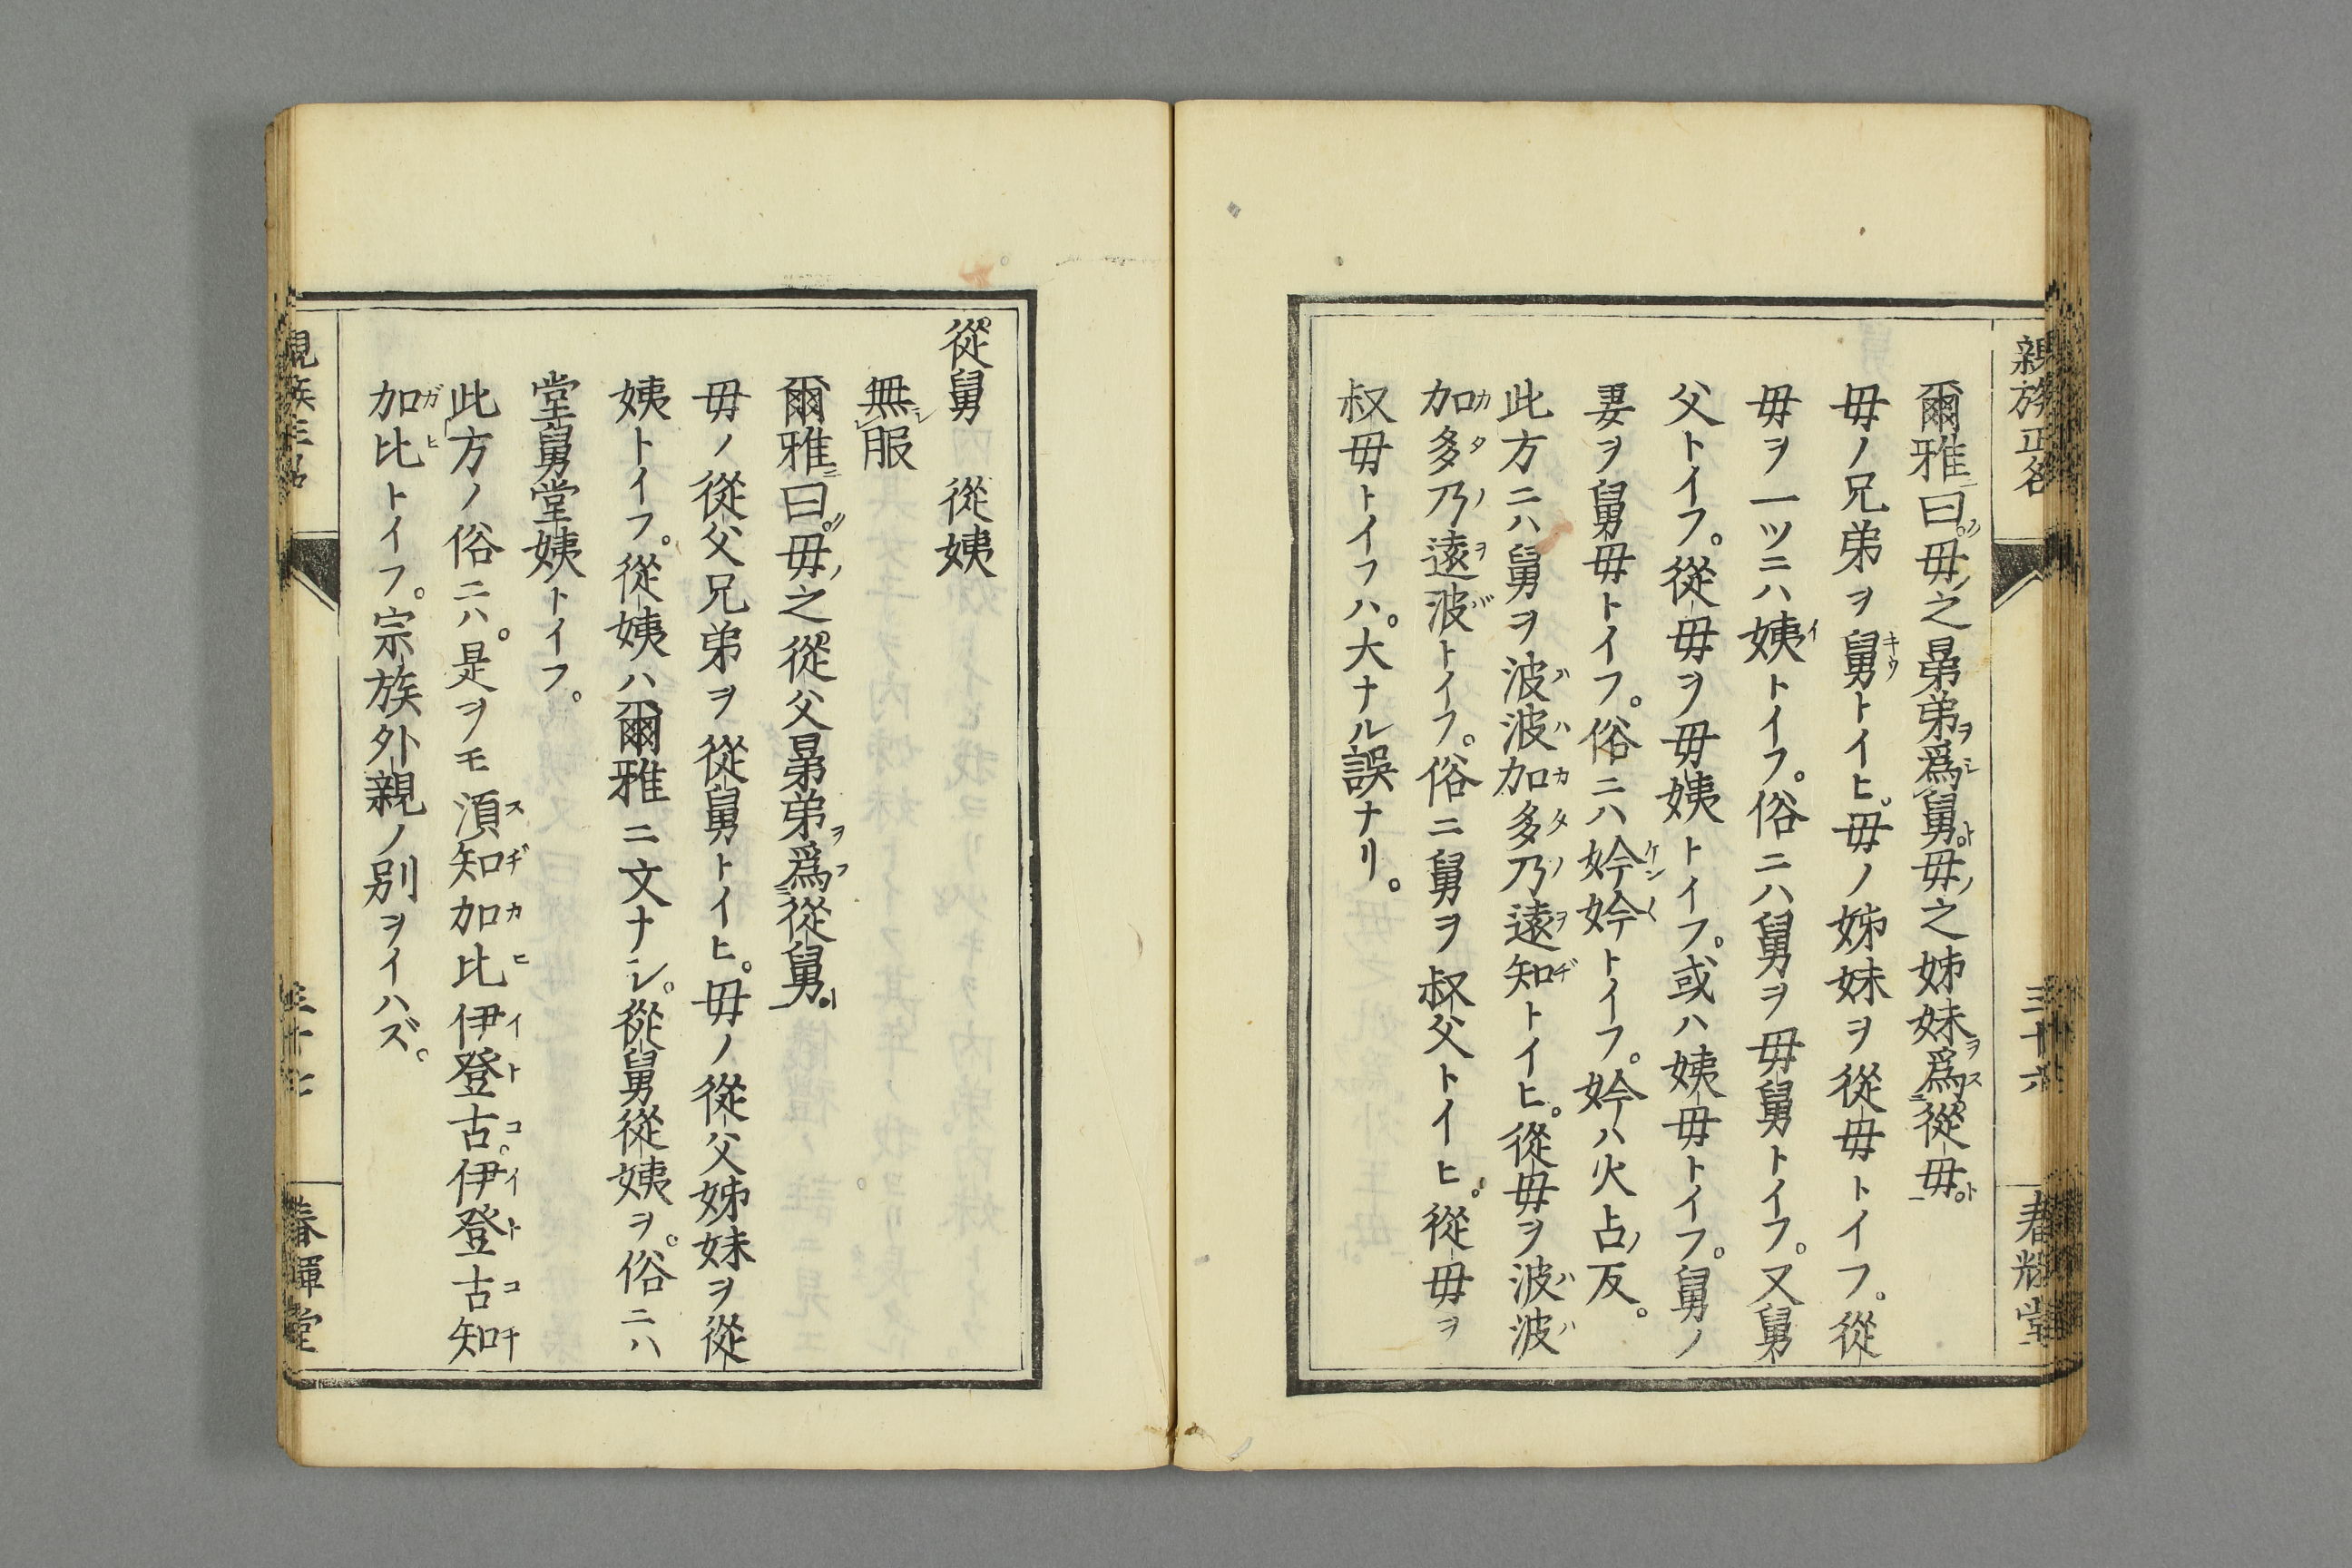 親族正名 三十六 春暉堂
爾雅曰。母之晜弟爲舅。母之姊妹爲從母。
母ノ兄弟ヲ舅トイヒ。母ノ姊妹ヲ從母トイフ。從
母ヲ一ツニハ姨トイフ。俗ニハ舅ヲ母舅トイフ。又舅
父トイフ。從母ヲ母姨トイフ。或ハ姨母トイフ。舅ノ
妻ヲ舅母トイフ。俗ニハ妗妗トイフ。妗ハ火占ノ反。
此方ニハ舅ヲ波波加多乃遠知トイヒ。從母ヲ波波
加多乃遠波トイフ。俗ニ舅ヲ叔父トイヒ。從母ヲ
叔母トイフハ。大ナル誤ナリ。
從舅 從姨
無服
爾雅曰。母之從父晜弟爲從舅。
母ノ從父兄弟ヲ從舅トイヒ。母ノ從父姊妹ヲ從
姨トイフ。從姨ハ爾雅ニ文ナシ。從舅從姨ヲ。俗ニハ
堂舅堂姨トイフ。
此方ノ俗ニハ。是ヲモ須知加比伊登古。伊登古知
加比トイフ。宗族外親ノ別ヲイハズ。
親族正名 三十七 春暉堂